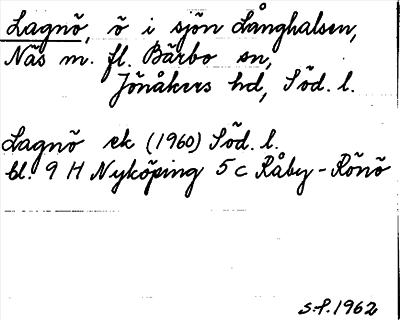 Lagnö, ö i sjön Långhalsen,
Näs m. fl. Bärbo sn,
Jönåkers hd, Söd. l.
Lagnö ek (1960) Söd. l.
bl. 9 H Nyköping 5 c Råby-Rönö
S.F. 1962